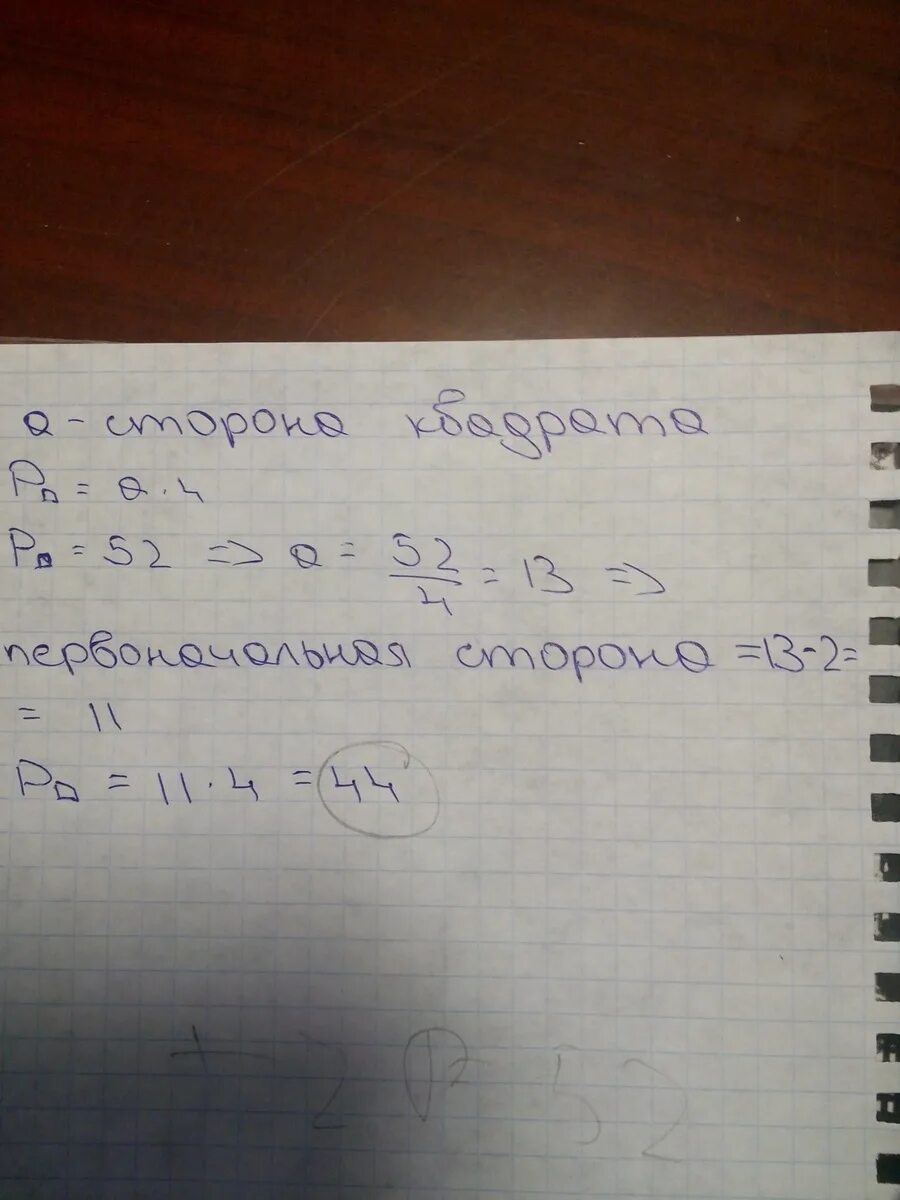 a - сторона квадрата
P□ = a · 4
P□ = 52 => a = 52/4 = 13 =>
первоначальная сторона =13-2=
= 11
P□ = 11 · 4 = 44
+ 2 P 52